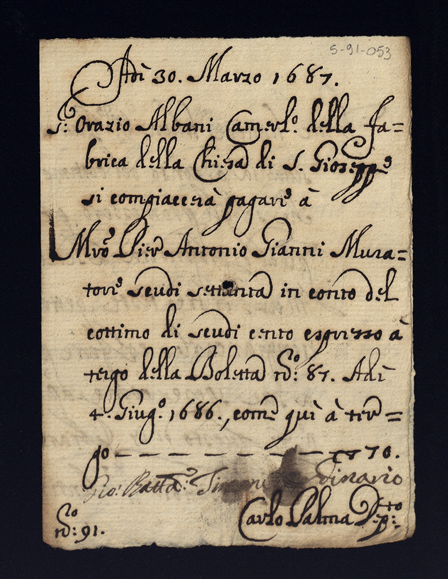 5-91-053
Adì 30. Marzo 1687.
S.r Orazio Albani Camerl.o della Fa=
brica della Chiesa di S. Gioseppe
si compiacerà pagare à
M.ro Pier Antonio Gianni Mura=
tore scudi settanta in conto del
cottimo di scudi cento espresso à
tergo della Boletta n.o: 87. Adì
4. Giug.o 1686., come quì à ter=
go — — — — — — — 70.
Gio: Batta:
Carlo Palma Dep.to:
n.o: 91.